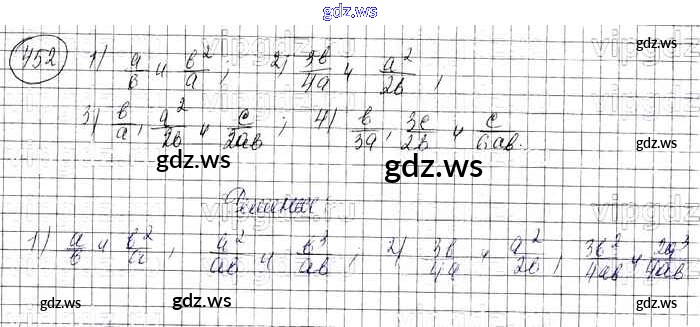 gdz.ws
452 1) a/b и b²/a, 2) 3b/4a и a²/2b,
3) b/a, a²/2b и c/2ab; 4) b/3a, 3c/2b и c/6ab.
Решение:
1) a/b и b²/a, a²/ab и b³/ab, 2) 3b/4a и a²/2b, 3b²/4ab и 2a³/4ab
gdz.ws gdz.ws gdz.ws